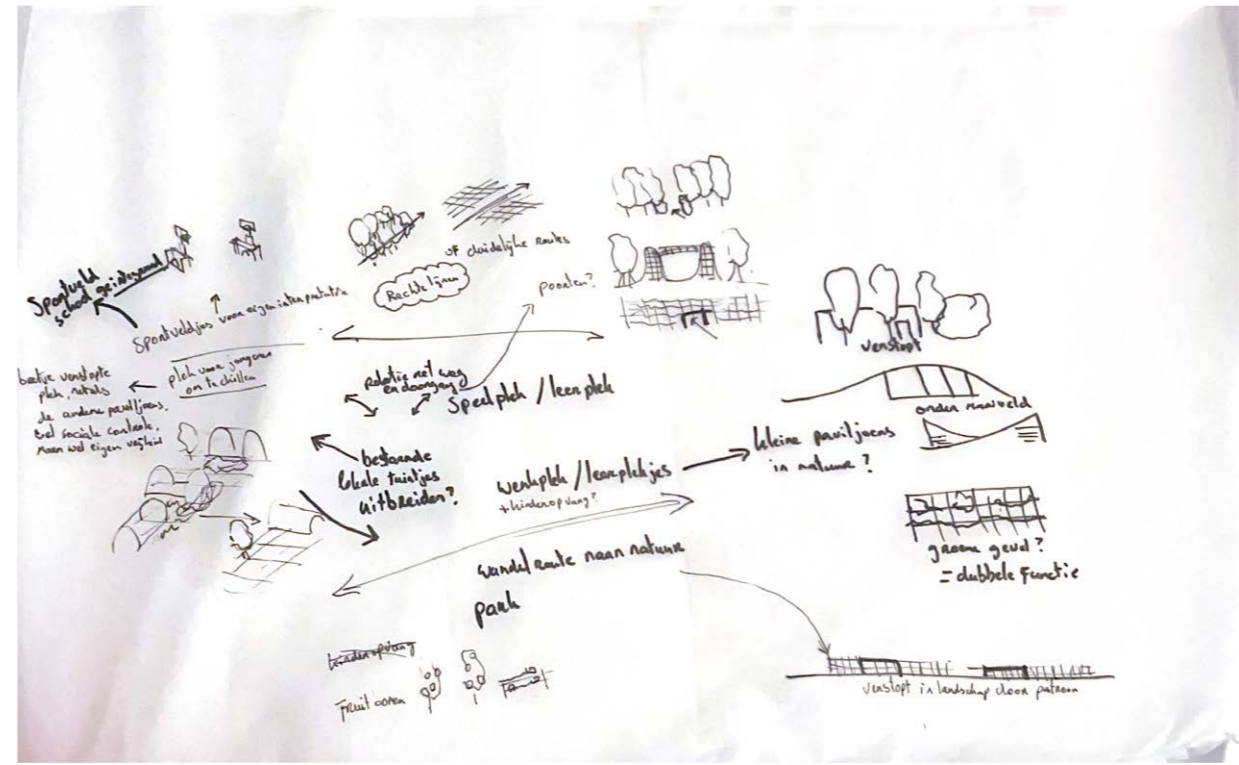 Sportveld
school geintegreerd
Sportveldjes voor eigen interpretatie
of duidelijke routes
Rechte lijnen
poorten?
beetje verstopte
plek, net als
de andere paviljoens.
wel sociale controle,
maar wel eigen
plek voor jongeren
om te chillen
relatie met weg
en doorgang
Speelplek / leerplek
bestaande
lokale tuintjes
uitbreiden?
werkplek / leerplekjes
+ kinderopvang?
kleine paviljoens
in natuur?
verstopt
onder maaiveld
groene gevel?
= dubbele functie
wandelroute naar natuur
park
kinderopvang
Fruitbomen
verstopt in landschap door patroon